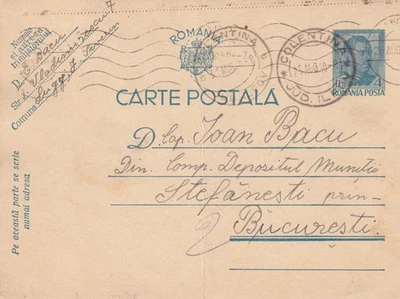 ROMANIA
Numele
și adresa
trimițătorului
D. C. Bacu
Str. Vladimirescu 7
Comuna Lugoj
COLENTINA
COLENTINA
JUD. IL
4
ROMANIA POSTA
CARTE POSTALĂ
D. Cap. Ioan Bacu
Din Comp. Depozitul Muniții
Ștefănești prin
București
Pe această parte se scrie
numai adresa